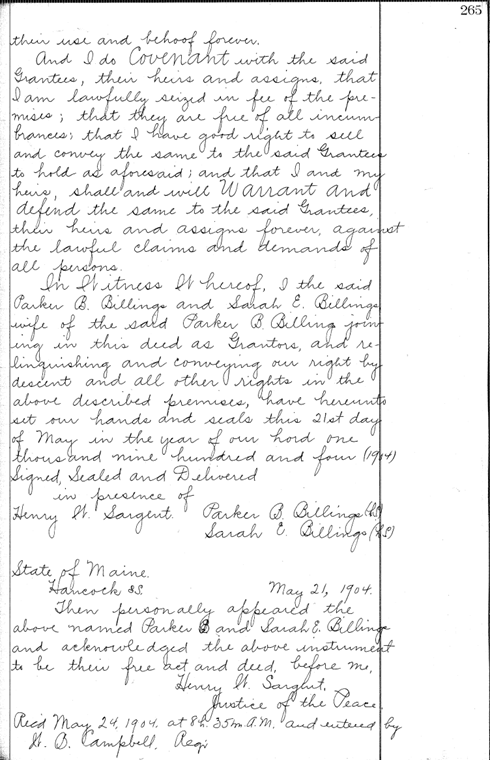 265
their use and behoof forever.
And I do Covenant with the said
Grantees, their heirs and assigns, that
I am lawfully seized in fee of the pre-
mises; that they are free of all incum-
brances; that I have good right to sell
and convey the same to the said Grantees
to hold as aforesaid; and that I and my
heirs, shall and will Warrant and
defend the same to the said Grantees,
their heirs and assigns forever, against
the lawful claims and demands of
all persons.
In Witness Whereof, I the said
Parker B. Billings and Sarah E. Billings,
wife of the said Parker B. Billing join-
ing in this deed as Grantors, and re-
linquishing and conveying our right by
descent and all other rights in the
above described premises, have hereunto
set our hands and seals this 21st day
of May in the year of our Lord one
thousand nine hundred and four (1904)
Signed, Sealed and Delivered
in presence of
Henry W. Sargent. Parker B. Billings (LS)
Sarah E. Billings (LS)
State of Maine.
Hancock SS. May 21, 1904.
Then personally appeared the
above named Parker B and Sarah E. Billings
and acknowledged the above instrument
to be their free act and deed, before me,
Henry W. Sargent,
Justice of the Peace
Recd May 24, 1904. at 8h. 35m A.M. and entered by
W. B. Campbell, Regr